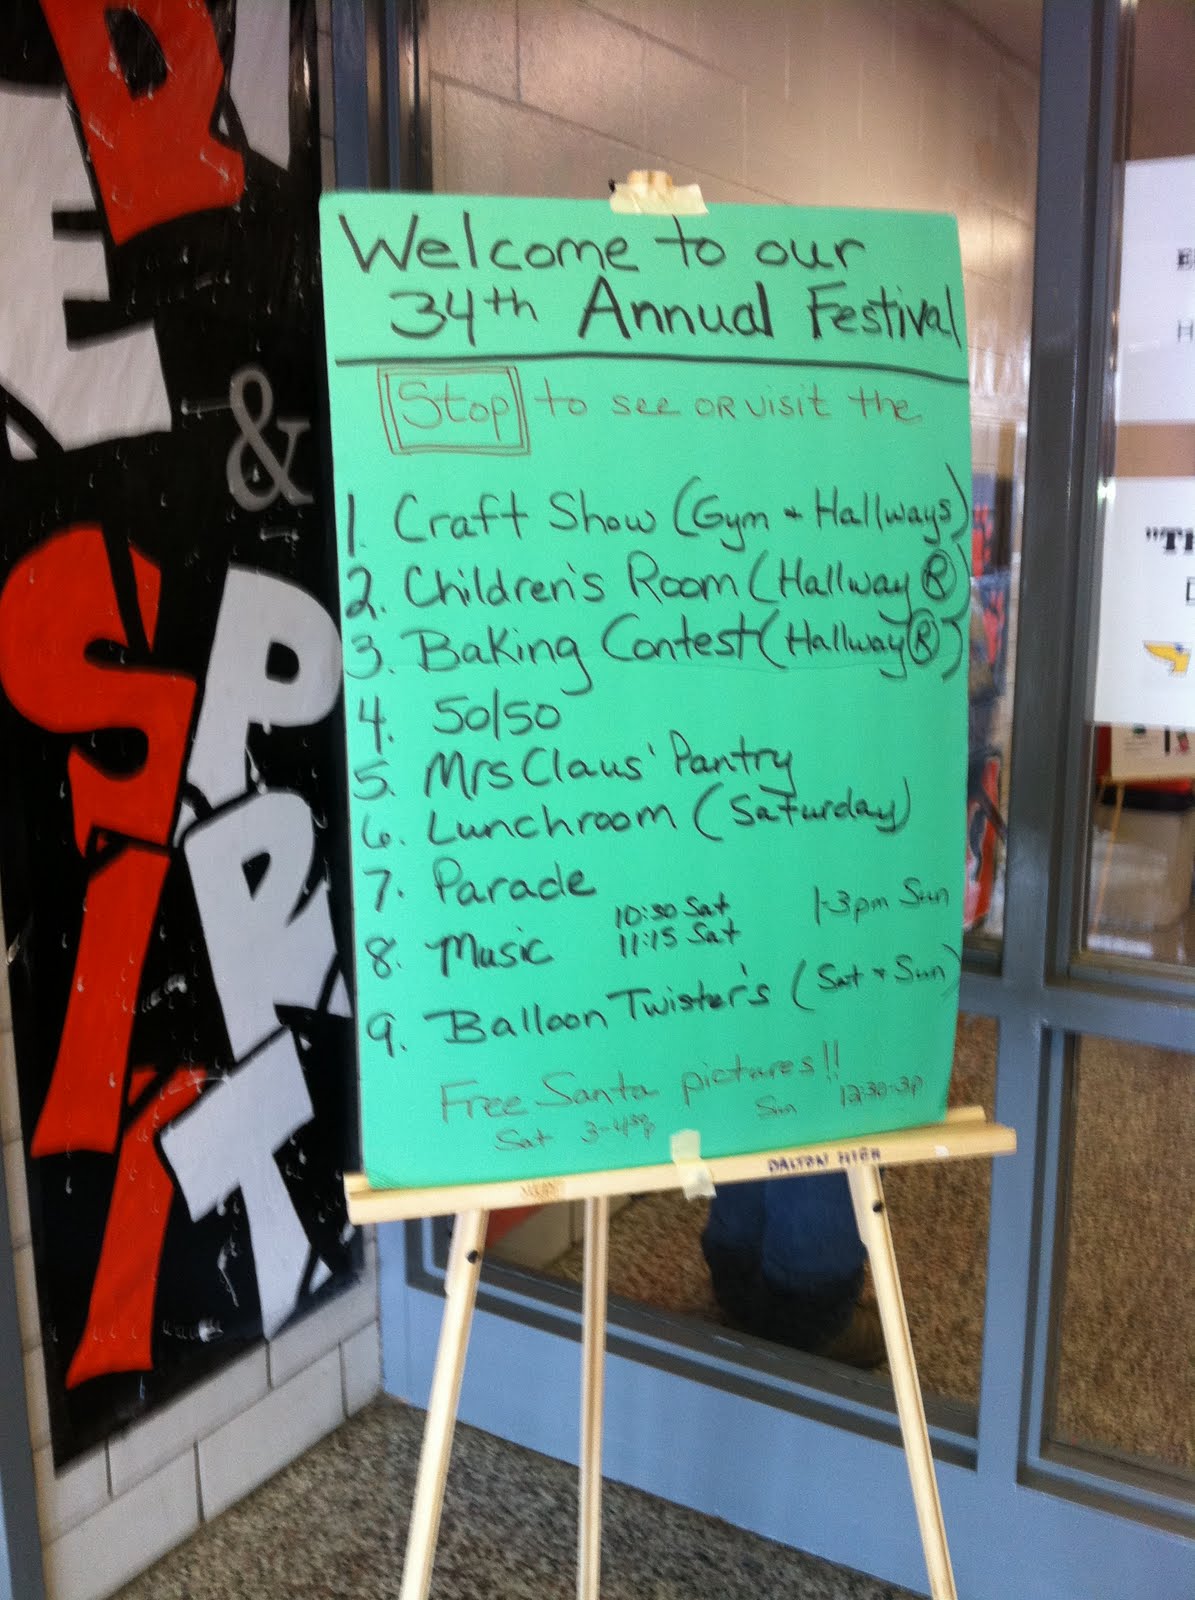 Welcome to our
34th Annual Festival
Stop to see OR visit the
1. Craft Show (Gym + Hallways)
2. Children's Room (Hallway R)
3. Baking Contest (Hallway R)
4. 50/50
5. Mrs Claus' Pantry
6. Lunchroom (Saturday)
7. Parade
10:30 Sat 1-3pm Sun
8. Music 11:15 Sat
9. Balloon Twister's (Sat + Sun)
Free Santa pictures!!
Sat 3-4:30p Sun 12:30-3p
DALTON HIGH
&
SPIRIT
"TH